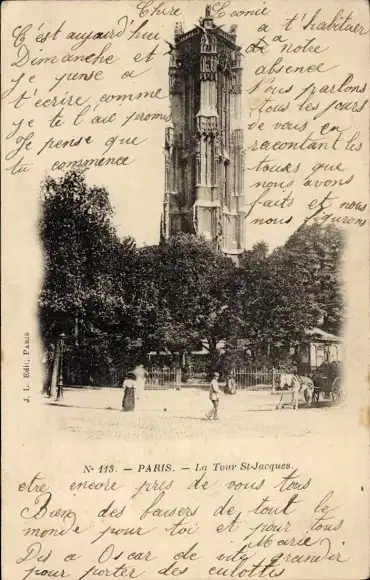 Chère Léonie
C'est aujourd'hui
Dimanche et
je pense a
t'écrire comme
je te l'ai promis
Je pense que
tu commence
a t'habituer
a notre
absence
Nous parlons
tous les jours
de vous en
racontant les
tours que
nous avons
faits et nous
nous figurons
J. L. Edit. PARIS
Nº 113. - PARIS. - La Tour St-Jacques.
etre encore près de vous tous
Bien des baisers de tout le
monde pour toi et pour tous
Marie
Dis a Oscar de vite grandir
pour porter des culottes